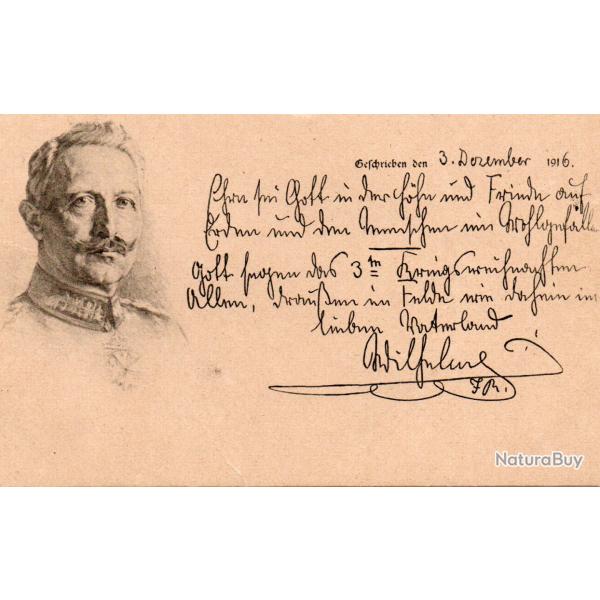 Geschrieben den 3. Dezember 1916.
Ehre sei Gott in der Höhe und Friede auf
Erden und den Menschen ein Wohlgefallen
Gott segnen das 3te Kriegsweihnachten
Allen, draußen im Felde wie daheim im
lieben Vaterland
Wilhelm
I.R.
NaturaBuy